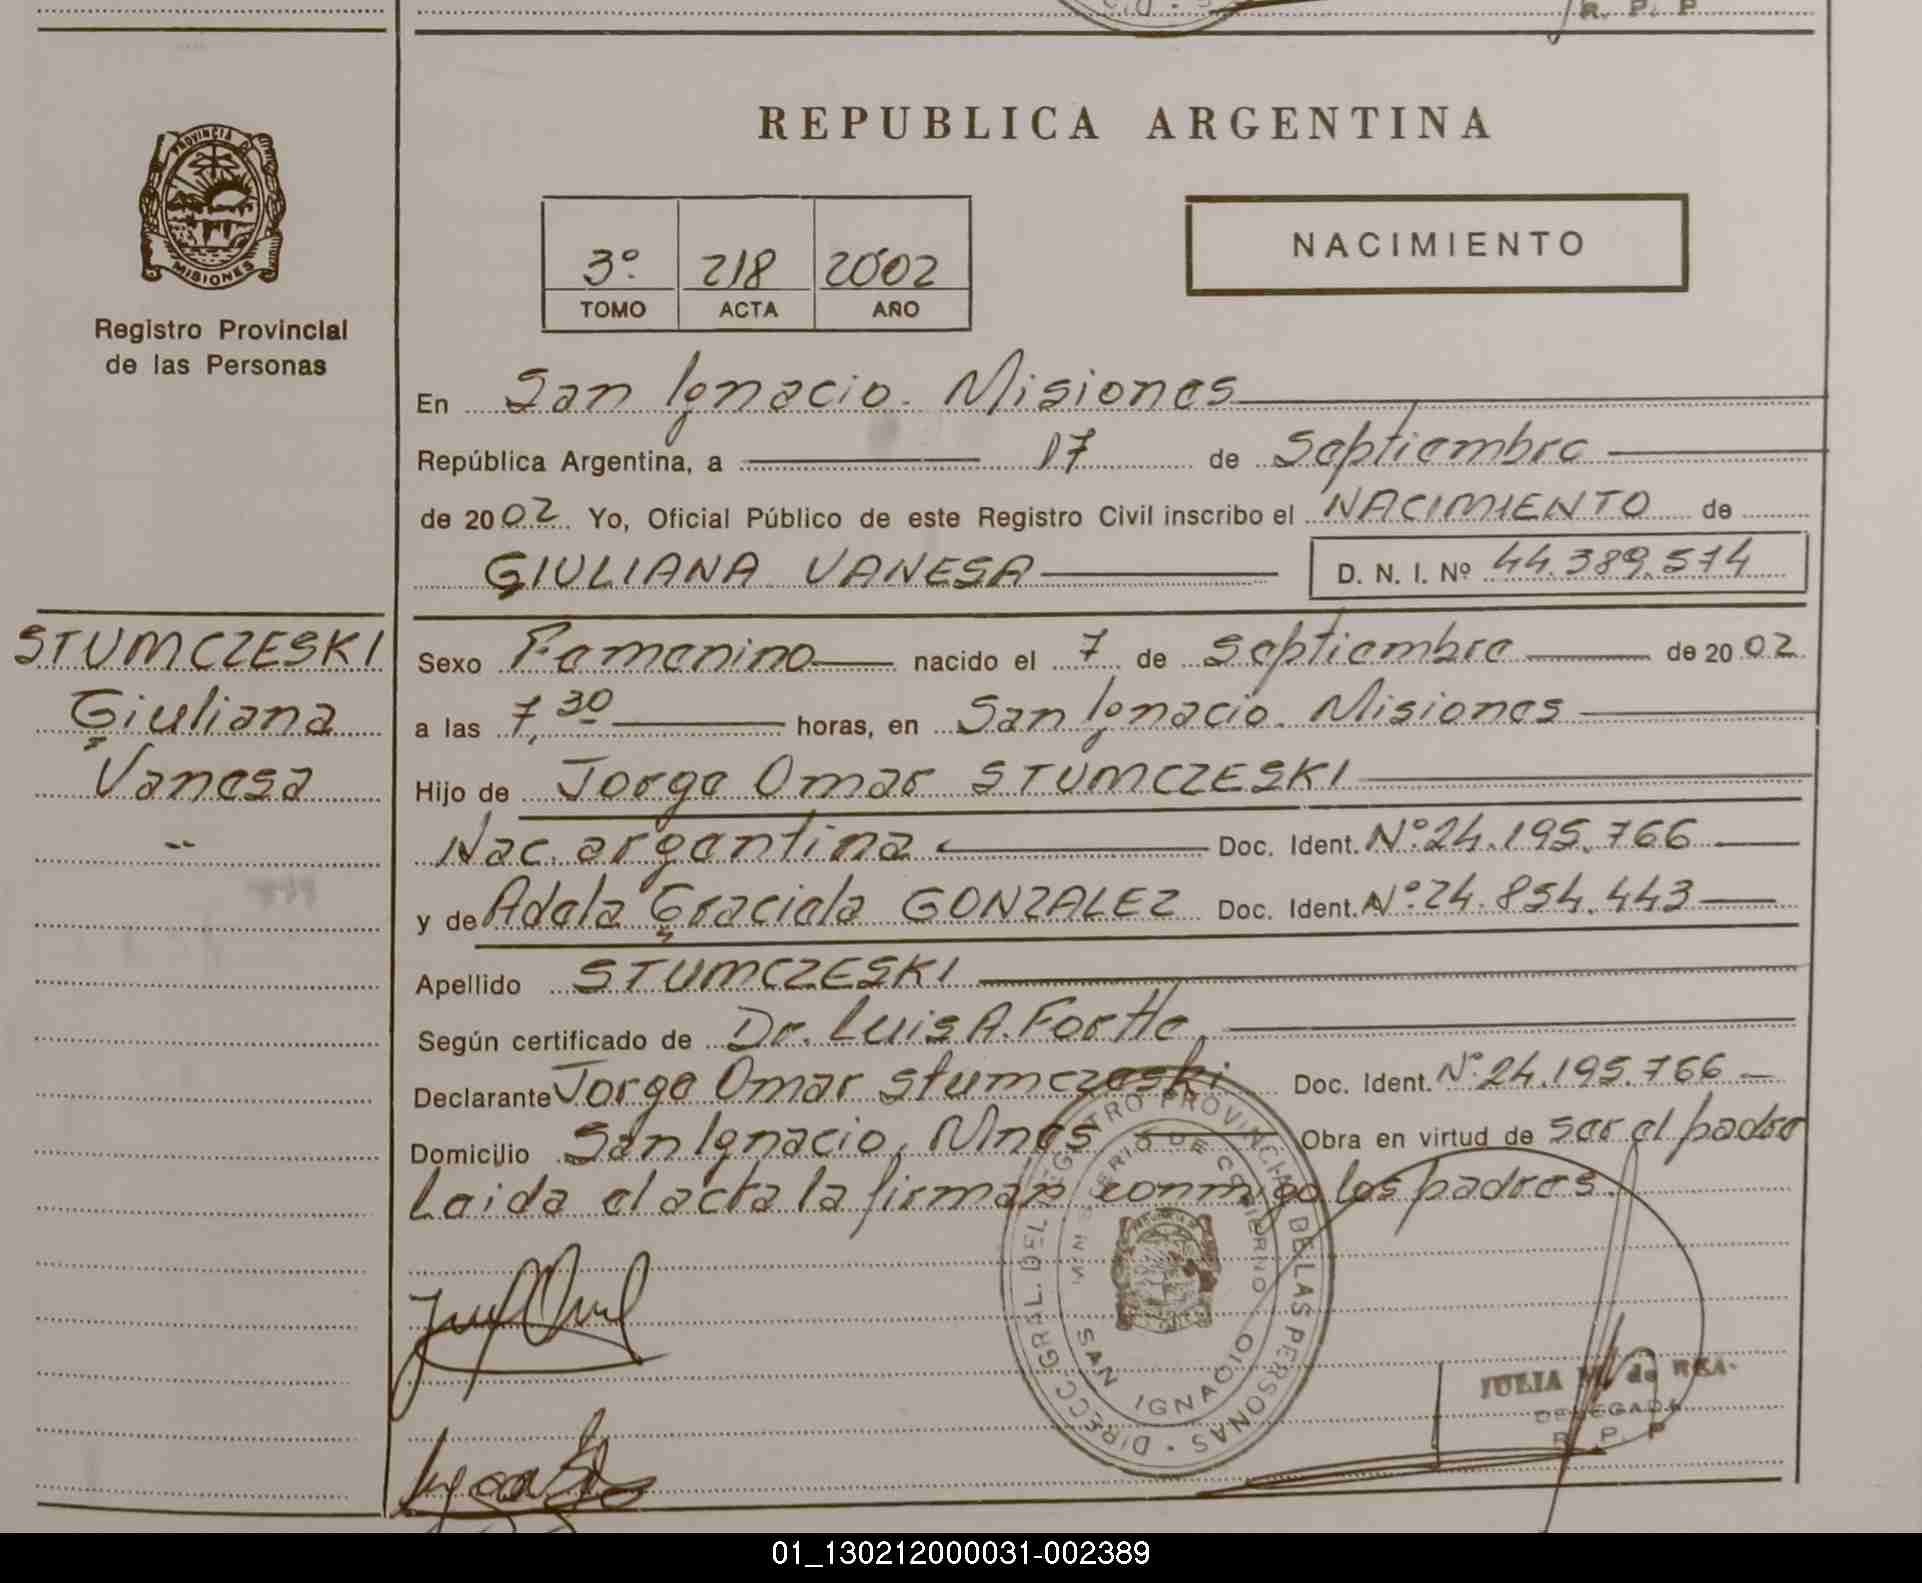 R. P. P
PROVINCIA DE
MISIONES
Registro Provincial
de las Personas
REPUBLICA ARGENTINA
3º 218 2002
TOMO ACTA AÑO
NACIMIENTO
En San Ignacio. Misiones
República Argentina, a 17 de Septiembre
de 2002 Yo, Oficial Público de este Registro Civil inscribo el NACIMIENTO de
GIULIANA VANESA D. N. I. Nº 44.389.574
STUMCZESKI
Giuliana
Vanesa
Sexo Femenino nacido el 7 de Septiembre de 2002
a las 7,30 horas, en San Ignacio. Misiones
Hijo de Jorge Omar STUMCZESKI
Nac. argentina Doc. Ident. Nº 24.195.766
y de Adela Graciela GONZALEZ Doc. Ident. Nº 24.854.443
Apellido STUMCZESKI
Según certificado de Dr. Luis A. Fortte
Declarante Jorge Omar Stumczeski Doc. Ident. Nº 24.195.766
Domicilio San Ignacio, Mnes Obra en virtud de ser el padre
Leida el acta la firman conmigo los padres.
DIRECC. GRAL. DEL REGISTRO PROVINCIAL DE LAS PERSONAS
MINISTERIO DE GOBIERNO
SAN IGNACIO
JULIA de
DELEGADA
R. P. P
01_130212000031-002389